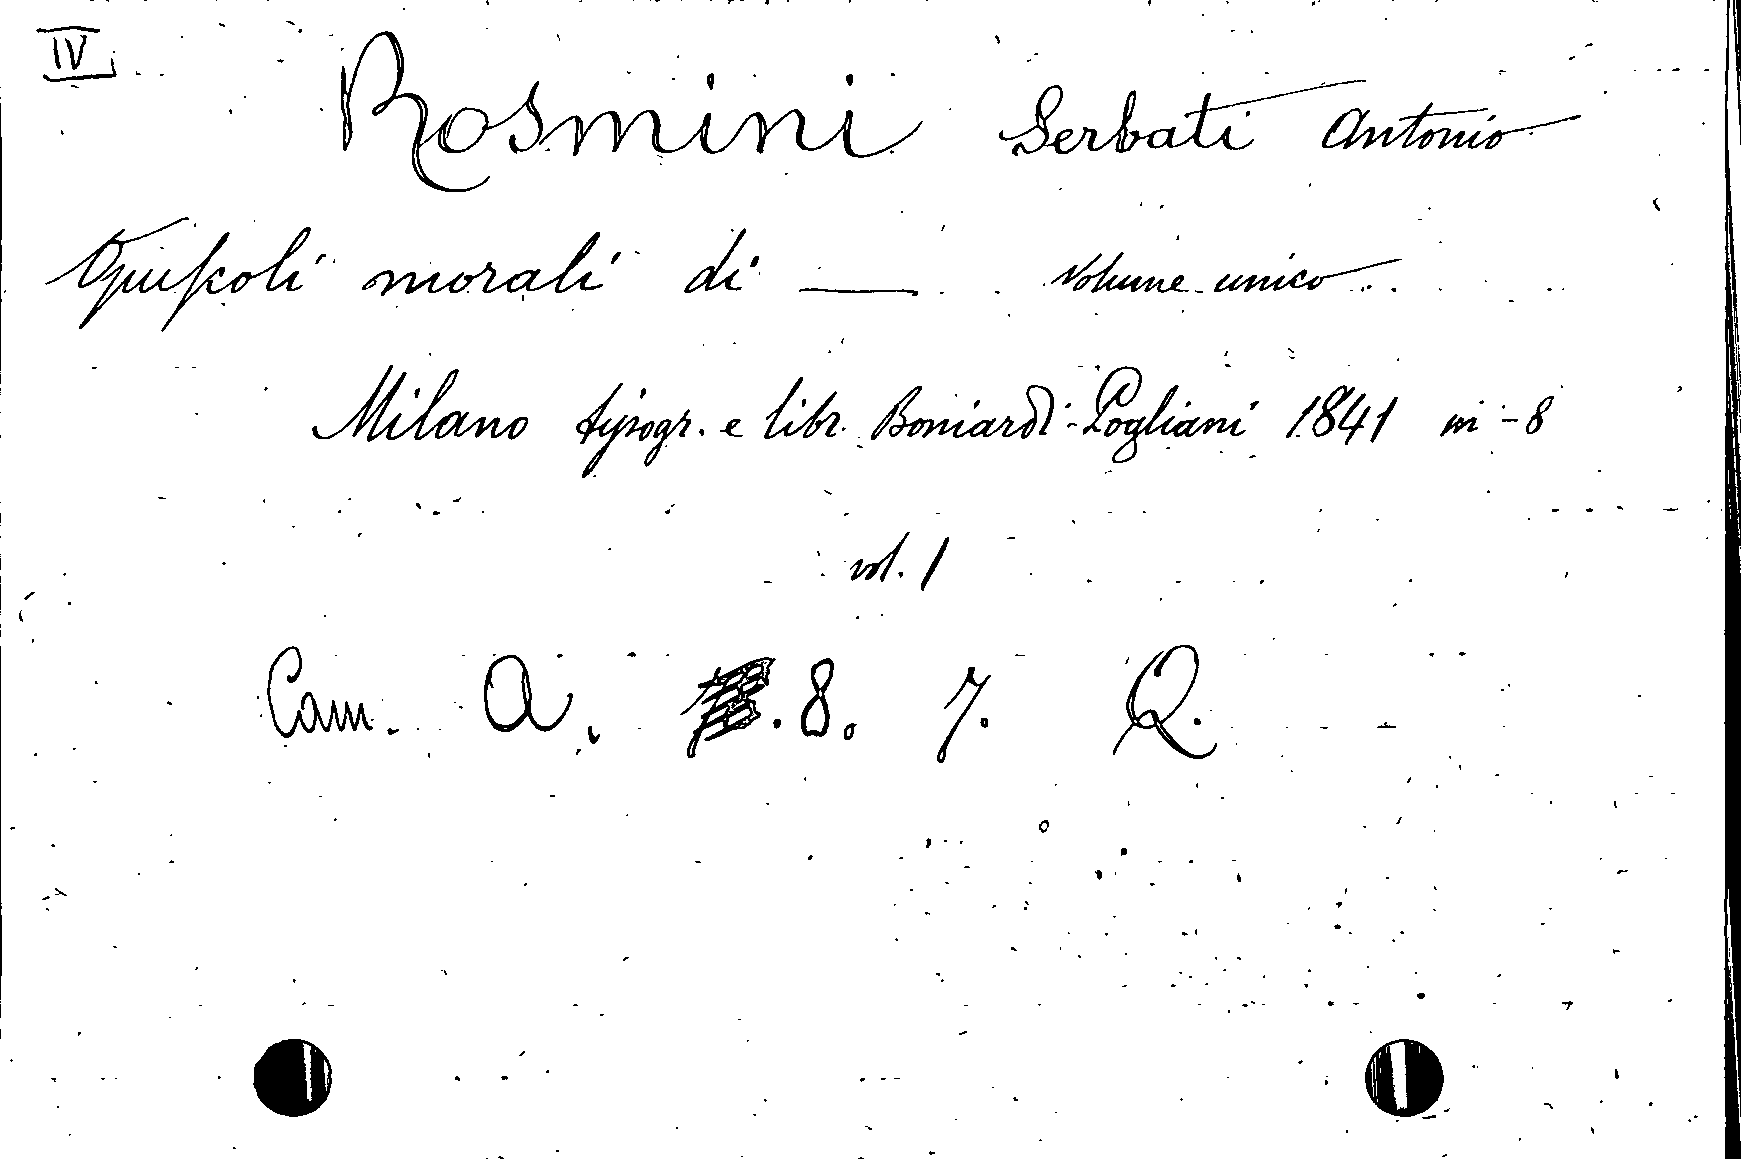 IV
Rosmini Serbati Antonio
Opuscoli morali di ___ Volume unico
Milano tipogr. e libr. Boniardi-Pogliani 1841 in-8
vol. 1
Cam. A. . 8. 7. Q.